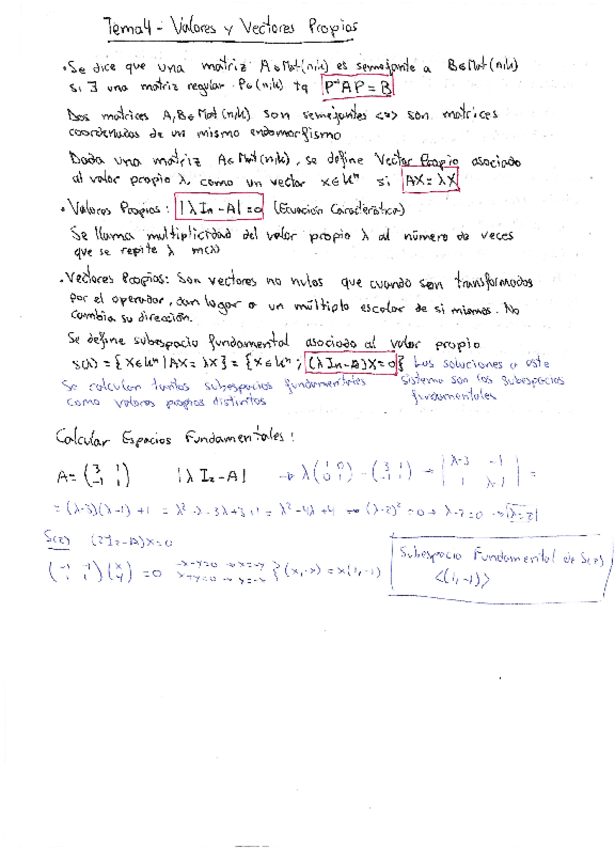 Tema 4 - Valores y Vectores Propios
• Se dice que una matriz A∈Mat(n,k) es semejante a B∈Mat(n,k)
si ∃ una matriz regular P∈(n,k) tq P⁻¹AP = B
Dos matrices A,B∈Mat(n,k) son semejantes <=> son matrices
coordenadas de un mismo endomorfismo
Dada una matriz A∈Mat(n,k), se define Vector Propio asociado
al valor propio λ, como un vector x∈kⁿ si AX = λX
• Valores Propios: |λIn - A| = 0 (Ecuación Característica)
Se llama multiplicidad del valor propio λ al número de veces
que se repite λ m(λ)
• Vectores Propios: Son vectores no nulos que cuando son transformados
por el operador, dan lugar a un múltiplo escalar de si mismos. No
cambia su dirección.
Se define subespacio fundamental asociado al valor propio
S(λ) = {X∈kⁿ | AX = λX} = {X∈kⁿ ; (λIn-A)X=0} Las soluciones a este
Se calculan tantos subespacios fundamentales sistema son los subespacios
como valores propios distintos fundamentales
Calcular Espacios Fundamentales:
A = (3 1; -1 1) |λI₂ - A| → λ(1 0; 0 1) - (3 1; -1 1) → |λ-3 -1; 1 λ-1| =
= (λ-3)(λ-1) + 1 = λ² - λ - 3λ + 3 + 1 = λ² - 4λ + 4 → (λ-2)² = 0 → λ-2 = 0 → λ=2
S(2) (2I₂-A)X=0
(-1 -1; 1 1)(x; y) = 0 -x-y=0 → x=-y x+y=0 → y=-x } (x,-x) = x(1,-1)
Subespacio Fundamental de S(2)
<(1,-1)>